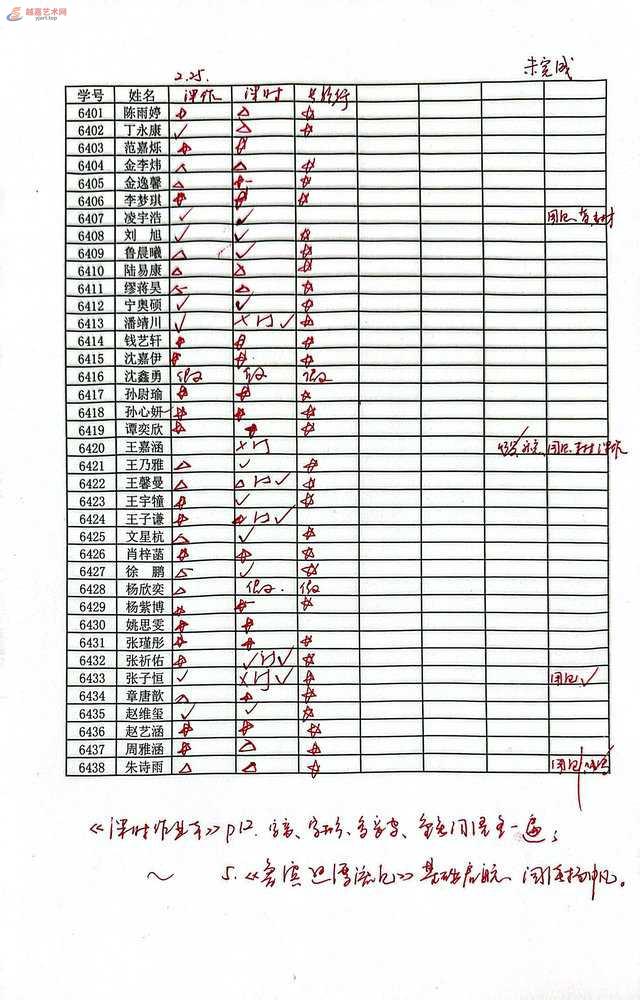 越嘉艺术网
yjart.top
2.25. 未完成
学号 姓名 课作 课时
6401 陈雨婷 ☆ △ ☆
6402 丁永康 ✓ △ ☆
6403 范嘉烁 ☆ ☆
6404 金李炜 △ △ ☆
6405 金逸馨 △ ☆ ☆
6406 李梦琪 ☆ ☆ ☆
6407 凌宇浩 ✓ ✓
6408 刘旭 ✓ ✓ ☆
6409 鲁晨曦 △ ✓ ☆
6410 陆易康 △ △ ☆
6411 缪蒋昊 △ △ ☆
6412 宁奥硕 ✓ ✓ ☆
6413 潘靖川 ✓ × 订 ✓ ☆
6414 钱艺轩 ☆ ☆ ☆
6415 沈嘉伊 ☆ ☆ ☆
6416 沈鑫勇 假 假 假
6417 孙尉瑜 ☆ ☆ ☆
6418 孙心妍 ☆ ☆ ☆
6419 谭奕欣 ☆ ☆ ☆
6420 王嘉涵 × 订
6421 王乃雅 △ ✓ ☆
6422 王馨曼 △ △ 订 ✓ ☆
6423 王宇犝 ☆ ✓ ☆
6424 王子谦 ☆ ☆ 订 ✓
6425 文星杭 △ ✓ ☆
6426 肖梓菡 ☆ ☆ ☆
6427 徐鹏 △ ✓ ☆
6428 杨欣奕 △ 假 假
6429 杨紫博 ☆ ☆ ☆
6430 姚思雯 ☆ ☆
6431 张瑾彤 ☆ ☆ ☆
6432 张祈佑 ☆ ✓ 订 ✓ ☆
6433 张子恒 ✓ × 订 ✓ ☆ ✓
6434 章唐歆 △ ☆ ☆
6435 赵维玺 ✓ ✓ ☆
6436 赵艺涵 ☆ ☆ ☆
6437 周雅涵 ☆ △ ☆
6438 朱诗雨 △ △ ☆
《课时作业本》P12. 一遍；
～ 5.《鲁滨逊漂流记》基础启航、阅读扬帆。